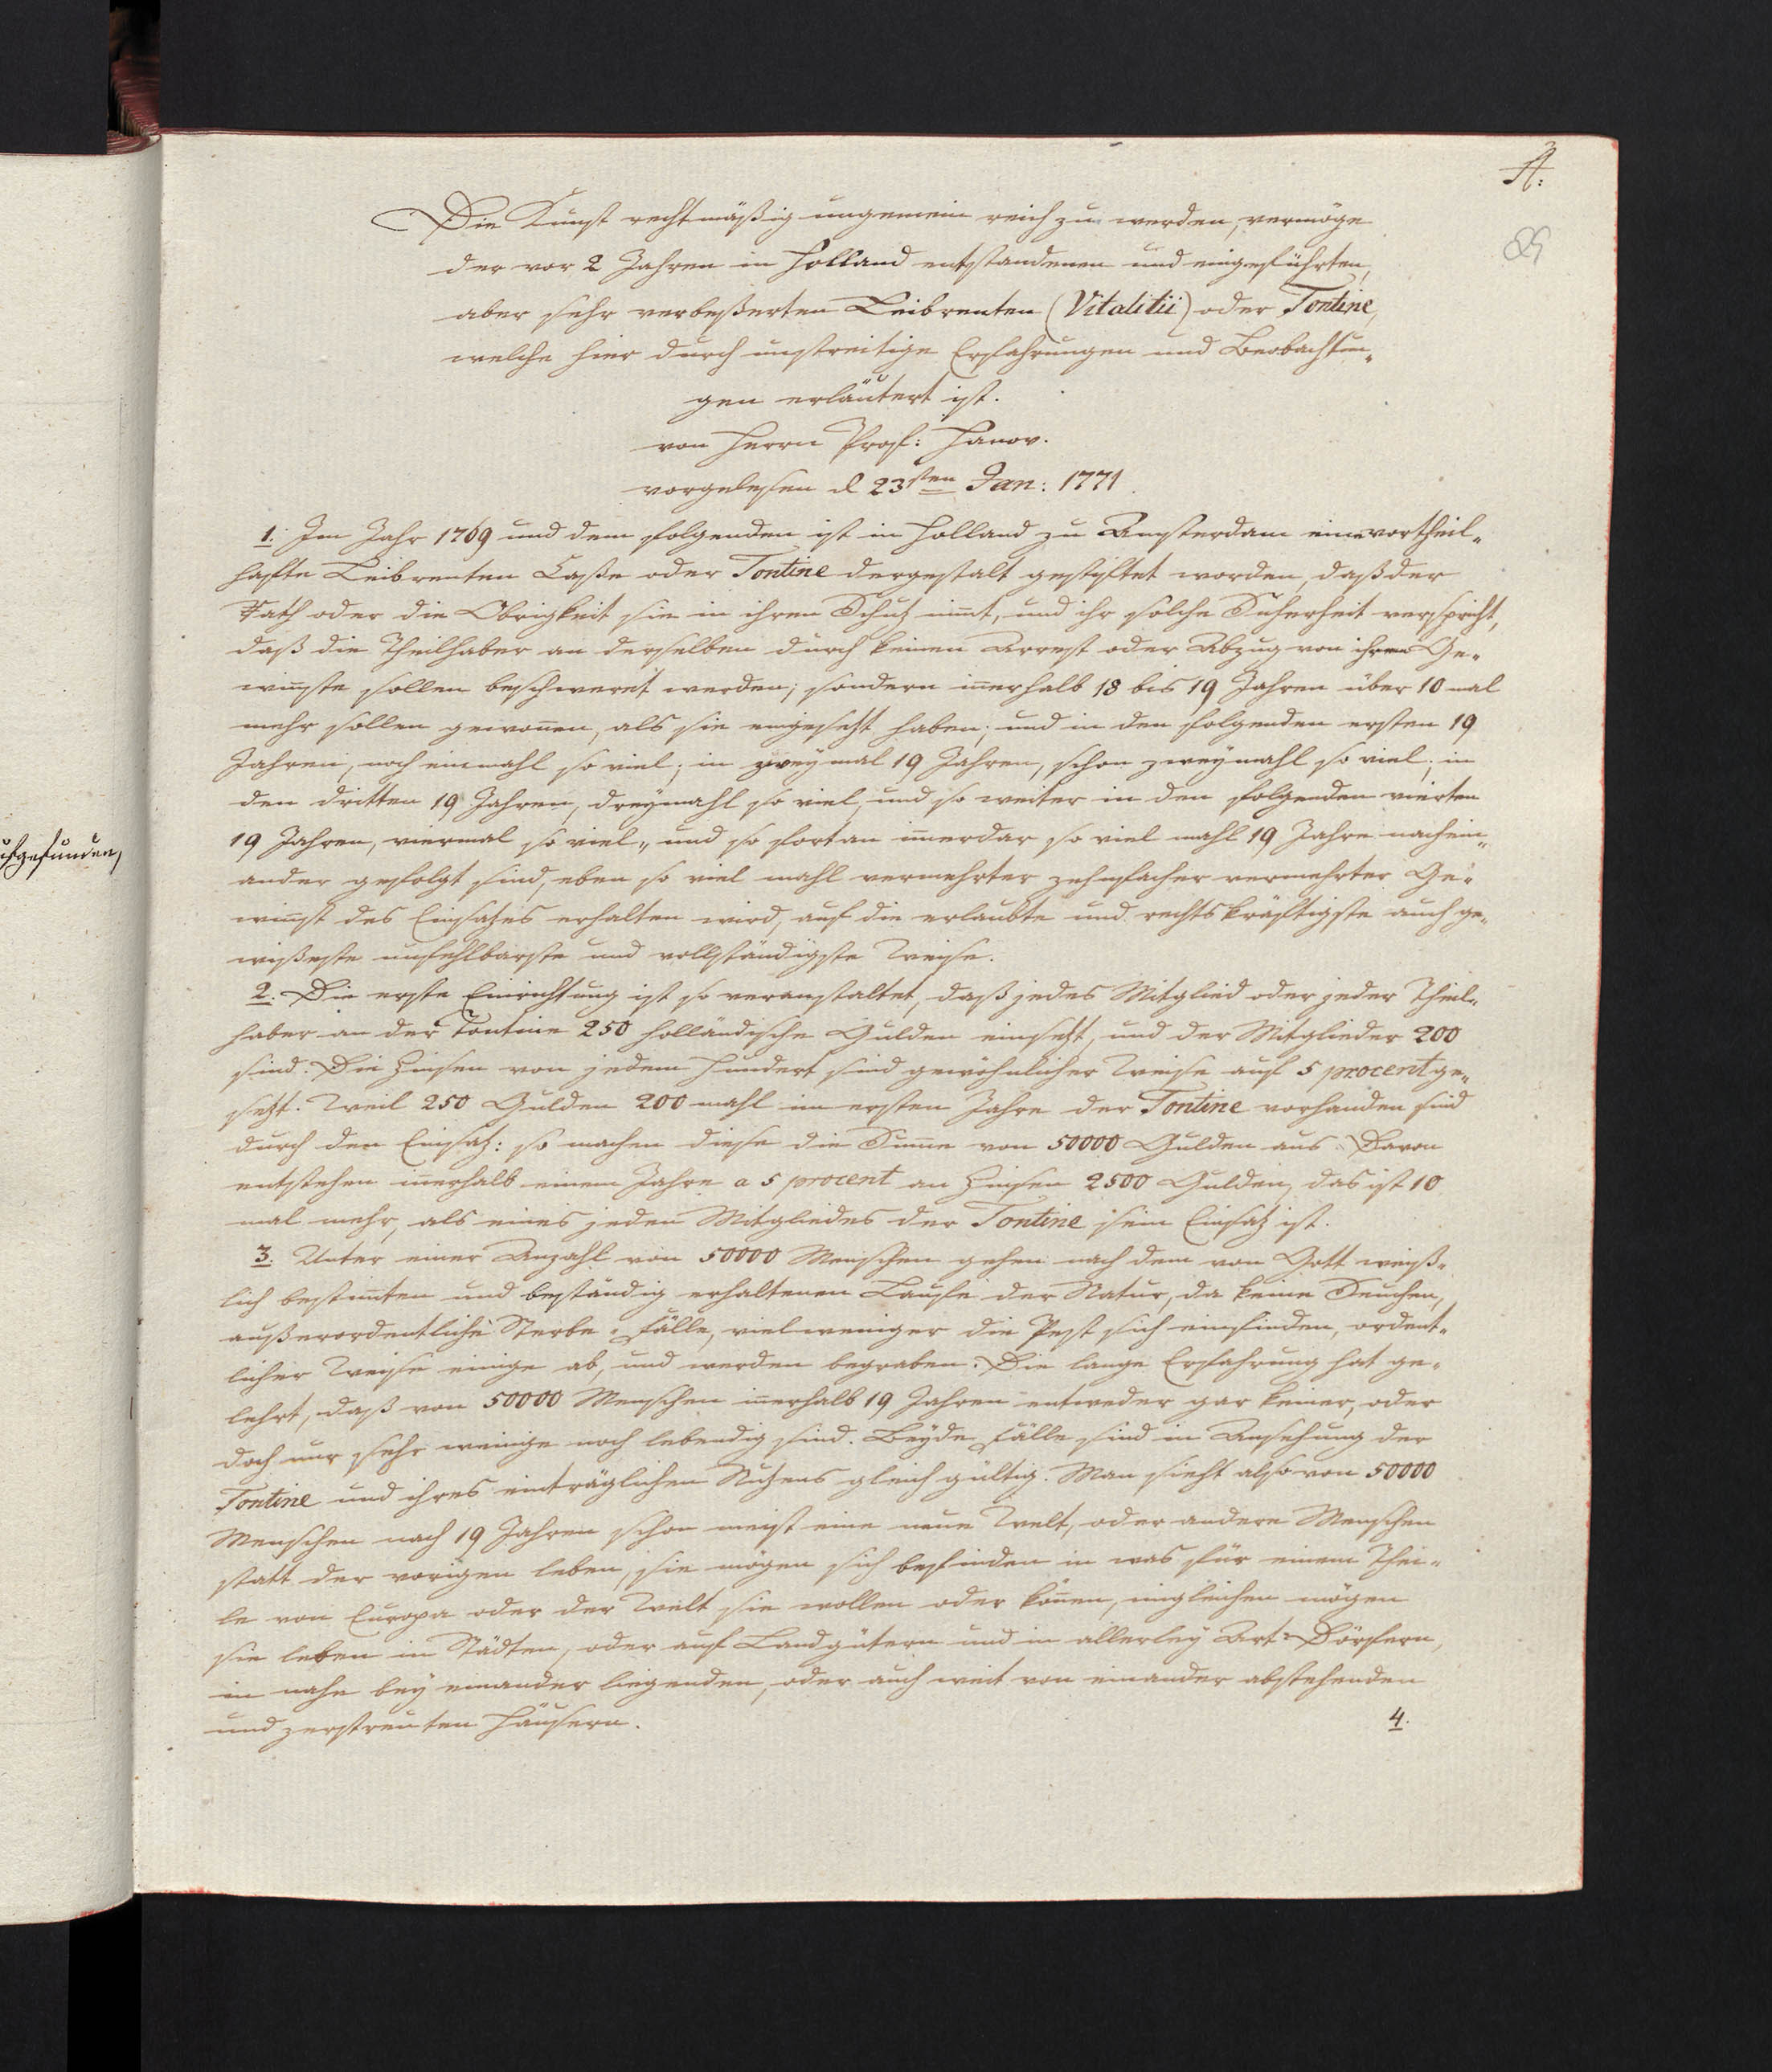 A.
85
ufgefunden,
Die Kunst rechtmäßig ungemein reich zu werden, vermöge
der vor 2 Jahren in Holland entstandenen und eingeführten,
aber sehr verbeßerten Leibrenten (Vitalitii) oder Tontine,
welche hier durch unstreitige Erfahrungen und Beobachtun-
gen erläutert ist.
von Herrn Prof: Hanov.
vorgelesen d 23sten Jan: 1771.
1. Im Jahr 1769 und dem folgenden ist in Holland zu Amsterdam eine vortheil-
hafte Leibrenten Caße oder Tontine dergestalt gestiftet worden, daß der
Rath oder die Obrigkeit sie in ihren Schutz nim̄t, und ihr solche Sicherheit verspricht,
daß die Theilhaber an derselben durch keinen Arrest oder Abzug von ihrem Ge-
win̄ste sollen beschweret werden; sondern in̄erhalb 18 bis 19 Jahren über 10 mal
mehr sollen gewon̄en, als sie eingesetzt haben; und in den folgenden ersten 19
Jahren, noch einmahl so viel; in zweymal 19 Jahren, schon zweymahl so viel; in
den dritten 19 Jahren, dreymahl so viel, und so weiter in den folgenden vierten
19 Jahren, viermal so viel, und so fortan im̄erdar so viel mahl 19 Jahre nachein-
ander gefolgt sind, eben so viel mahl vermehrter zehnfacher vermehrter Ge-
win̄st des Einsatzes erhalten wird, auf die erlaubte und rechtskräftigste auch ge-
wißeste unfehlbarste und vollständigste Weise.
2. Die erste Einrichtung ist so veranstaltet, daß jedes Mitglied oder jeder Theil-
haber an der Tontine 250 holländische Gulden einsetzt, und der Mitglieder 200
sind. Die Zinsen von jedem Hundert sind gewöhnlicher Weise auf 5 procent ge-
setzt. Weil 250 Gulden 200 mahl im ersten Jahre der Tontine vorhanden sind
durch den Einsatz: so machen diese die Sum̄e von 50000 Gulden aus. Davon
entstehen in̄erhalb einem Jahre a 5 procent an Zinsen 2500 Gulden, das ist 10
mal mehr, als eines jeden Mitgliedes der Tontine sein Einsatz ist.
3. Unter einer Anzahl von 50000 Menschen gehen nach dem von Gott weiß-
lich bestim̄ten und beständig erhaltenen Laufe der Natur, da keine Seuchen,
außerordentliche Sterbe-Fälle, vielweniger die Pest sich einfinden, ordent-
licher Weise einige ab, und werden begraben. Die lange Erfahrung hat ge-
lehrt, daß von 50000 Menschen in̄erhalb 19 Jahren entweder gar keiner, oder
doch nur sehr wenige noch lebendig sind. Beyde Fälle sind in Ansehung der
Tontine und ihres einträglichen Nutzens gleich gültig. Man sieht also von 50000
Menschen nach 19 Jahren schon meist eine neue Welt, oder andere Menschen
statt der vorigen leben, sie mögen sich befinden in was für einem Thei-
le von Europa oder der Welt sie wollen oder kön̄en, imgleichen mögen
sie leben in Städten, oder auf Landgütern und in allerley Art Dörfern,
in nahe bey einander liegenden, oder auch weit von einander abstehenden
und zerstreuten Häusern.
4.